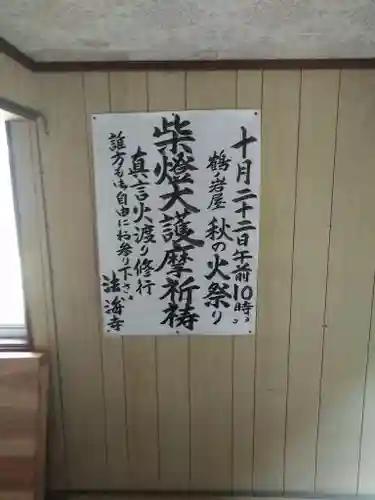 十月二十二日午前10時、
鶴ノ岩屋 秋の火祭り
柴燈大護摩祈祷
真言火渡り修行
誰方も御自由にお参り下さい。
法海寺